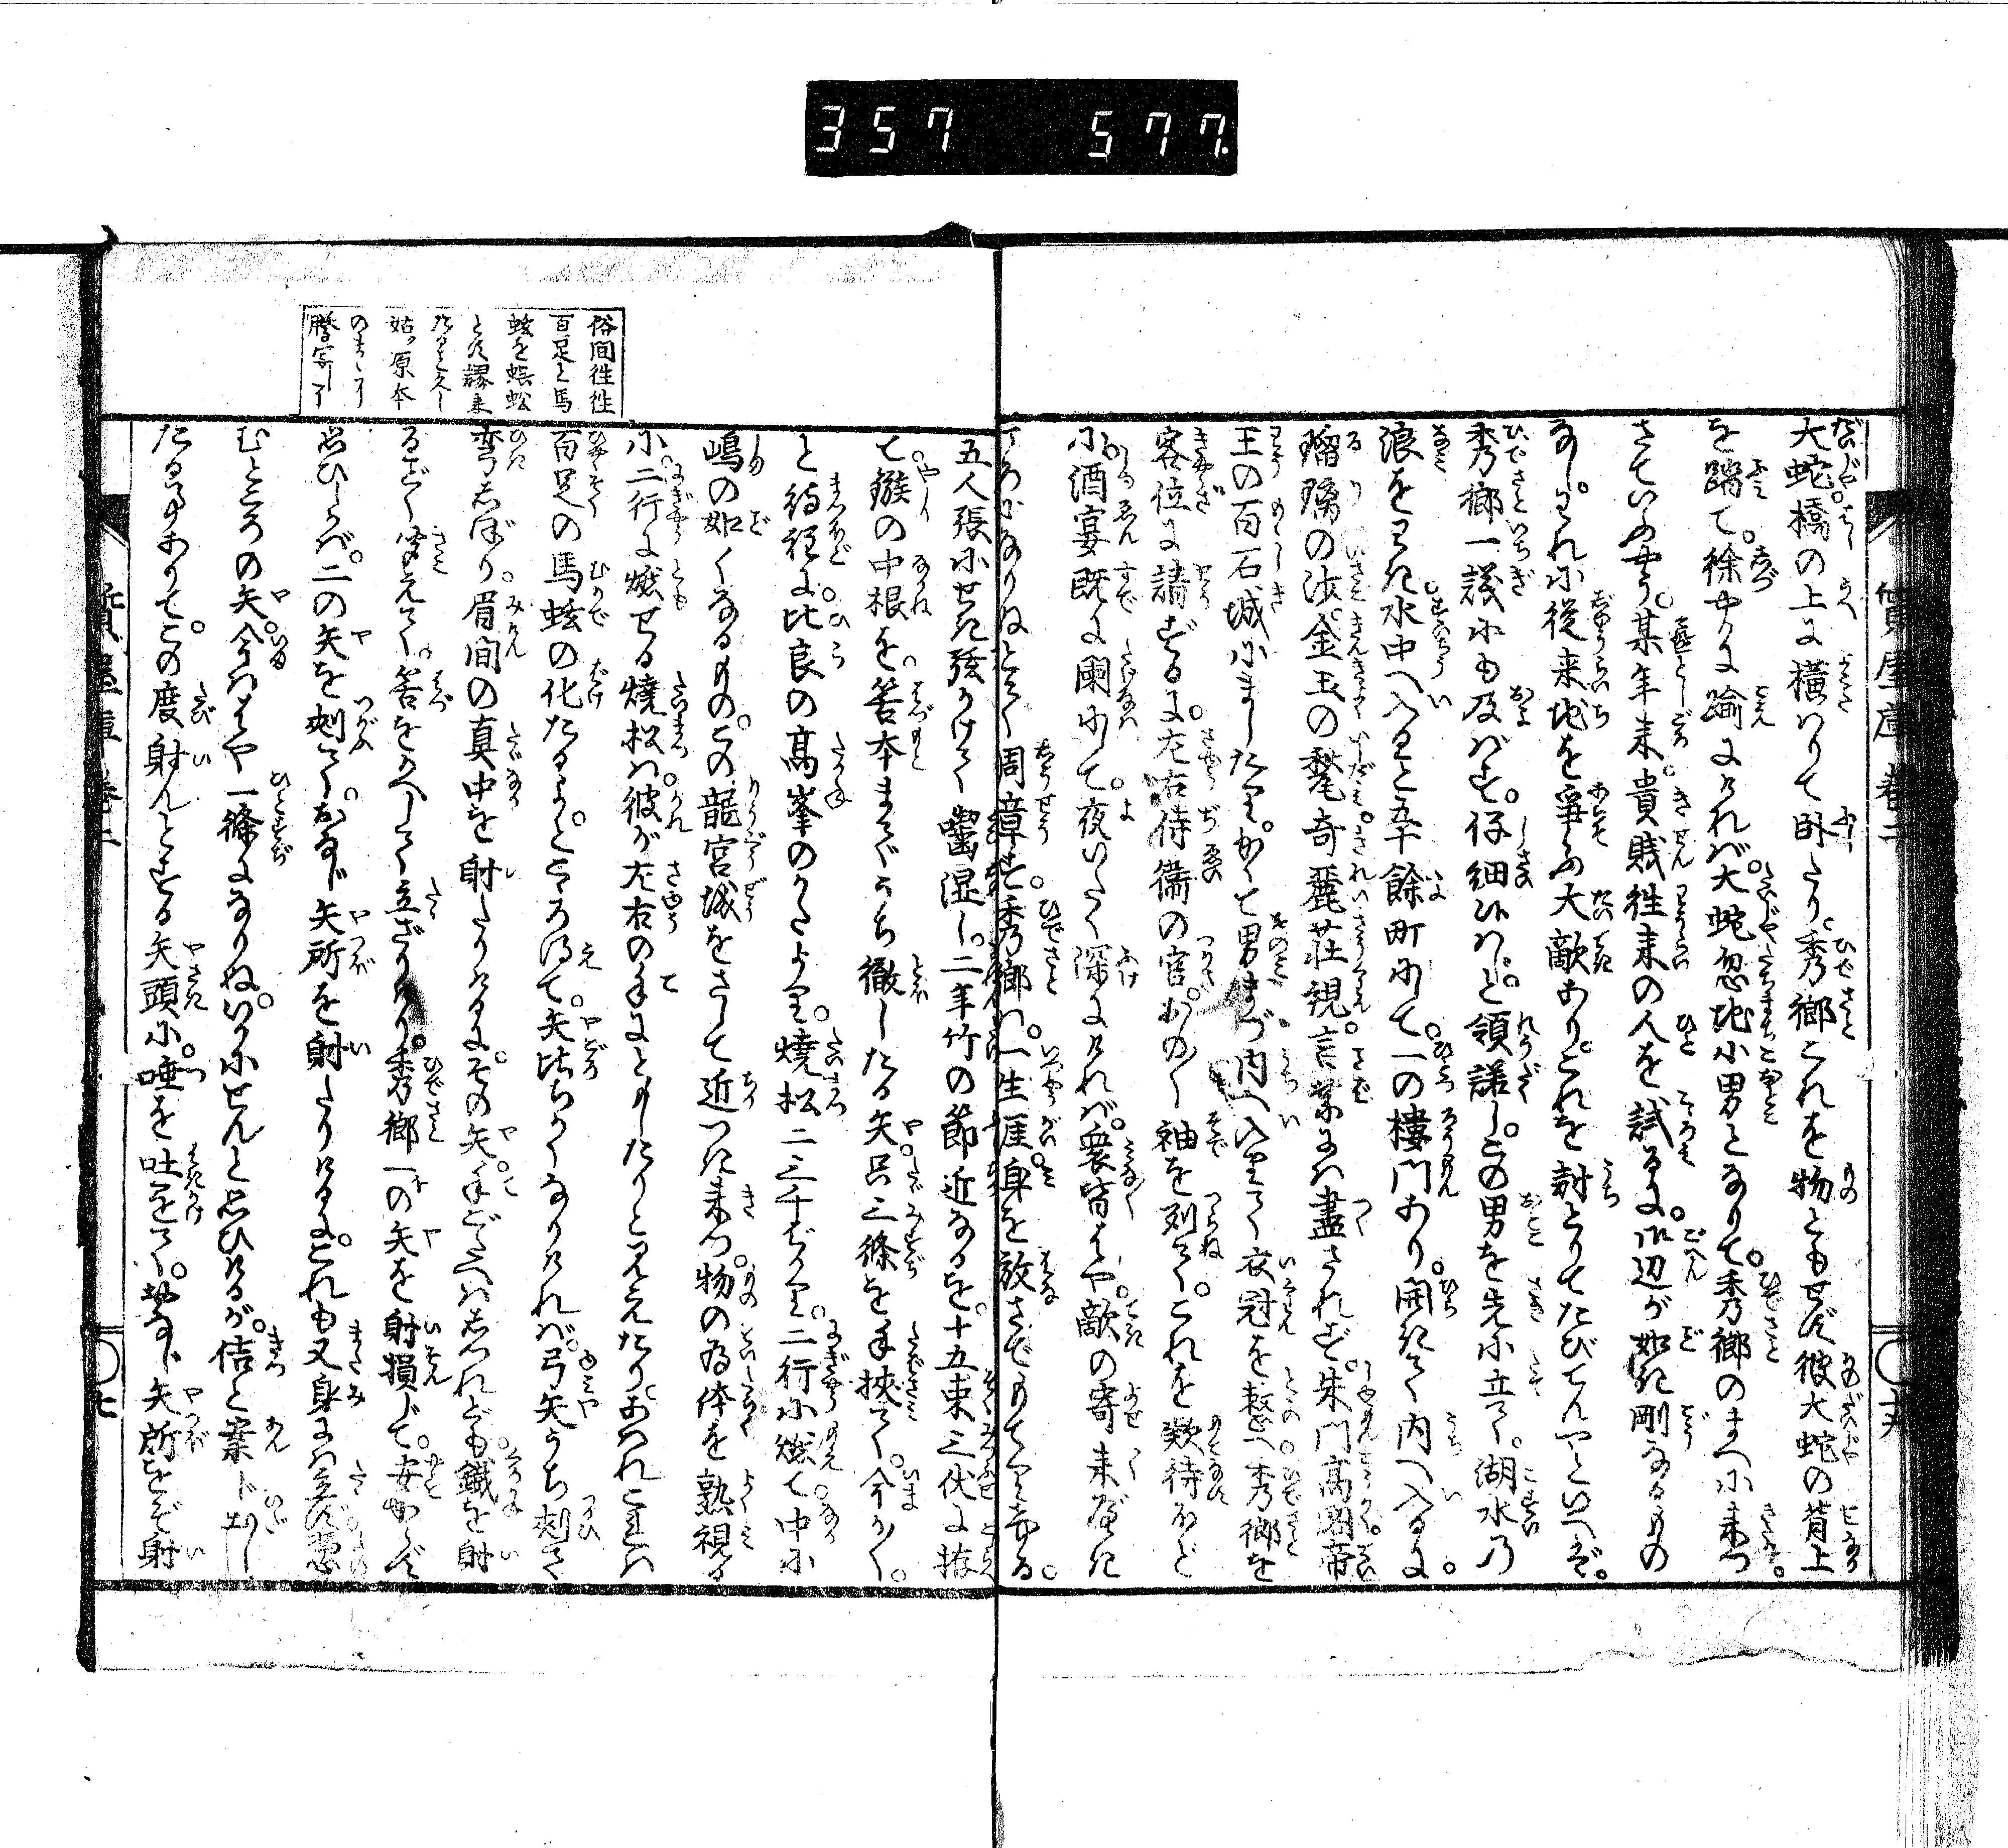 357 577.
質屋庫 巻二
大蛇。橋の上に横はりて臥たり。秀郷これを物ともせず彼大蛇の背上
を踏て。徐やかに踰にければ。大蛇忽地小男となりて。秀郷のまへに来つ。
さていふやう。某年来。貴賤往来の人を試るに。御辺が如き剛なるもの
なし。われに従来地を争ふ大敵あり。これを討とりてたびてんやといへば。
秀郷一議にも及ばず。仔細候はじと。領諾し。この男を先に立て。湖水の
浪をわけ。水中へ入ること五十餘町にして。一の樓門あり。開きて内へ入るに。
瑠璃の沙。金玉の甃。奇麗荘観。言葉には盡されず。朱門高閣帝
王の百石城にましたり。かくて男まづ内へ入りて衣冠を整へ。秀郷を
客位に請ずるに。左右侍衛の官。おの〳〵袖を列て。これを款待ほど
に。酒宴既に闌にして。夜いたく深にければ。衆皆はや。敵の寄来べき
ころになりぬとて周章す。秀郷は。一生涯。身を放さでもてりける。
五人張にせき弦かけて嚙湿し。三年竹の節近なるを。十五束三伏に拵
て。鏃の中根を。筈本までうち徹したる矢。只三條を手挾て。今か〳〵。
と待程に。比良の高峯のかたより。焼松二三千ばかり。二行に燃て中に
嶋の如くなるもの。この龍宮城をさして近つき来つ。物の為体を熟視る
に。二行に燃せる焼松は。彼が左右の手にともしたりと見えたり。あはれこれは
百足の馬蚿の化たるよ。とこころ得て。矢比ちかくなりければ。弓矢うち刺て
彎しぼり。眉間の真中を射たりけるに。その矢。手ごたへはしつれども。鐵を射
るごとく聞えて。筈をかへして立ざりけり。秀郷一の矢を射損じて。安からず
思ひしかば。二の矢を刺て。おなじ矢所を射たりけるに。これも又身には立ず。
むところの矢。今ははや一條になりぬ。いかにせんと思ひけるが。佶と案じ出し
たる事ありて。この度射んとする矢頭に。唾を吐かけて。おなじ矢所をぞ射
俗間往往
百足と馬
蚿を蜈蚣
とす謬来
たること久し
姑く原本
のまゝに
謄写了
質屋庫 巻二
七